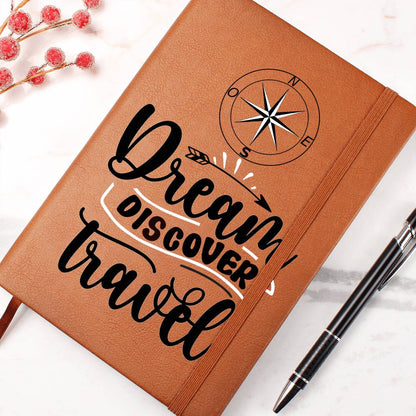 N
O E
S
Dream
DISCOVER
travel